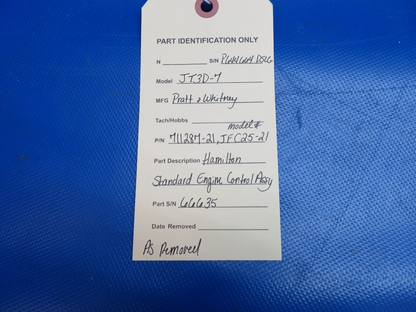 PART IDENTIFICATION ONLY
N S/N
Model JT3D-7
MFG Pratt & Whitney
Tach/Hobbs
model#
P/N 711287-21, JFC25-21
Part Description Hamilton
Standard Engine Control Assy
Part S/N 66635
Date Removed
As Removed